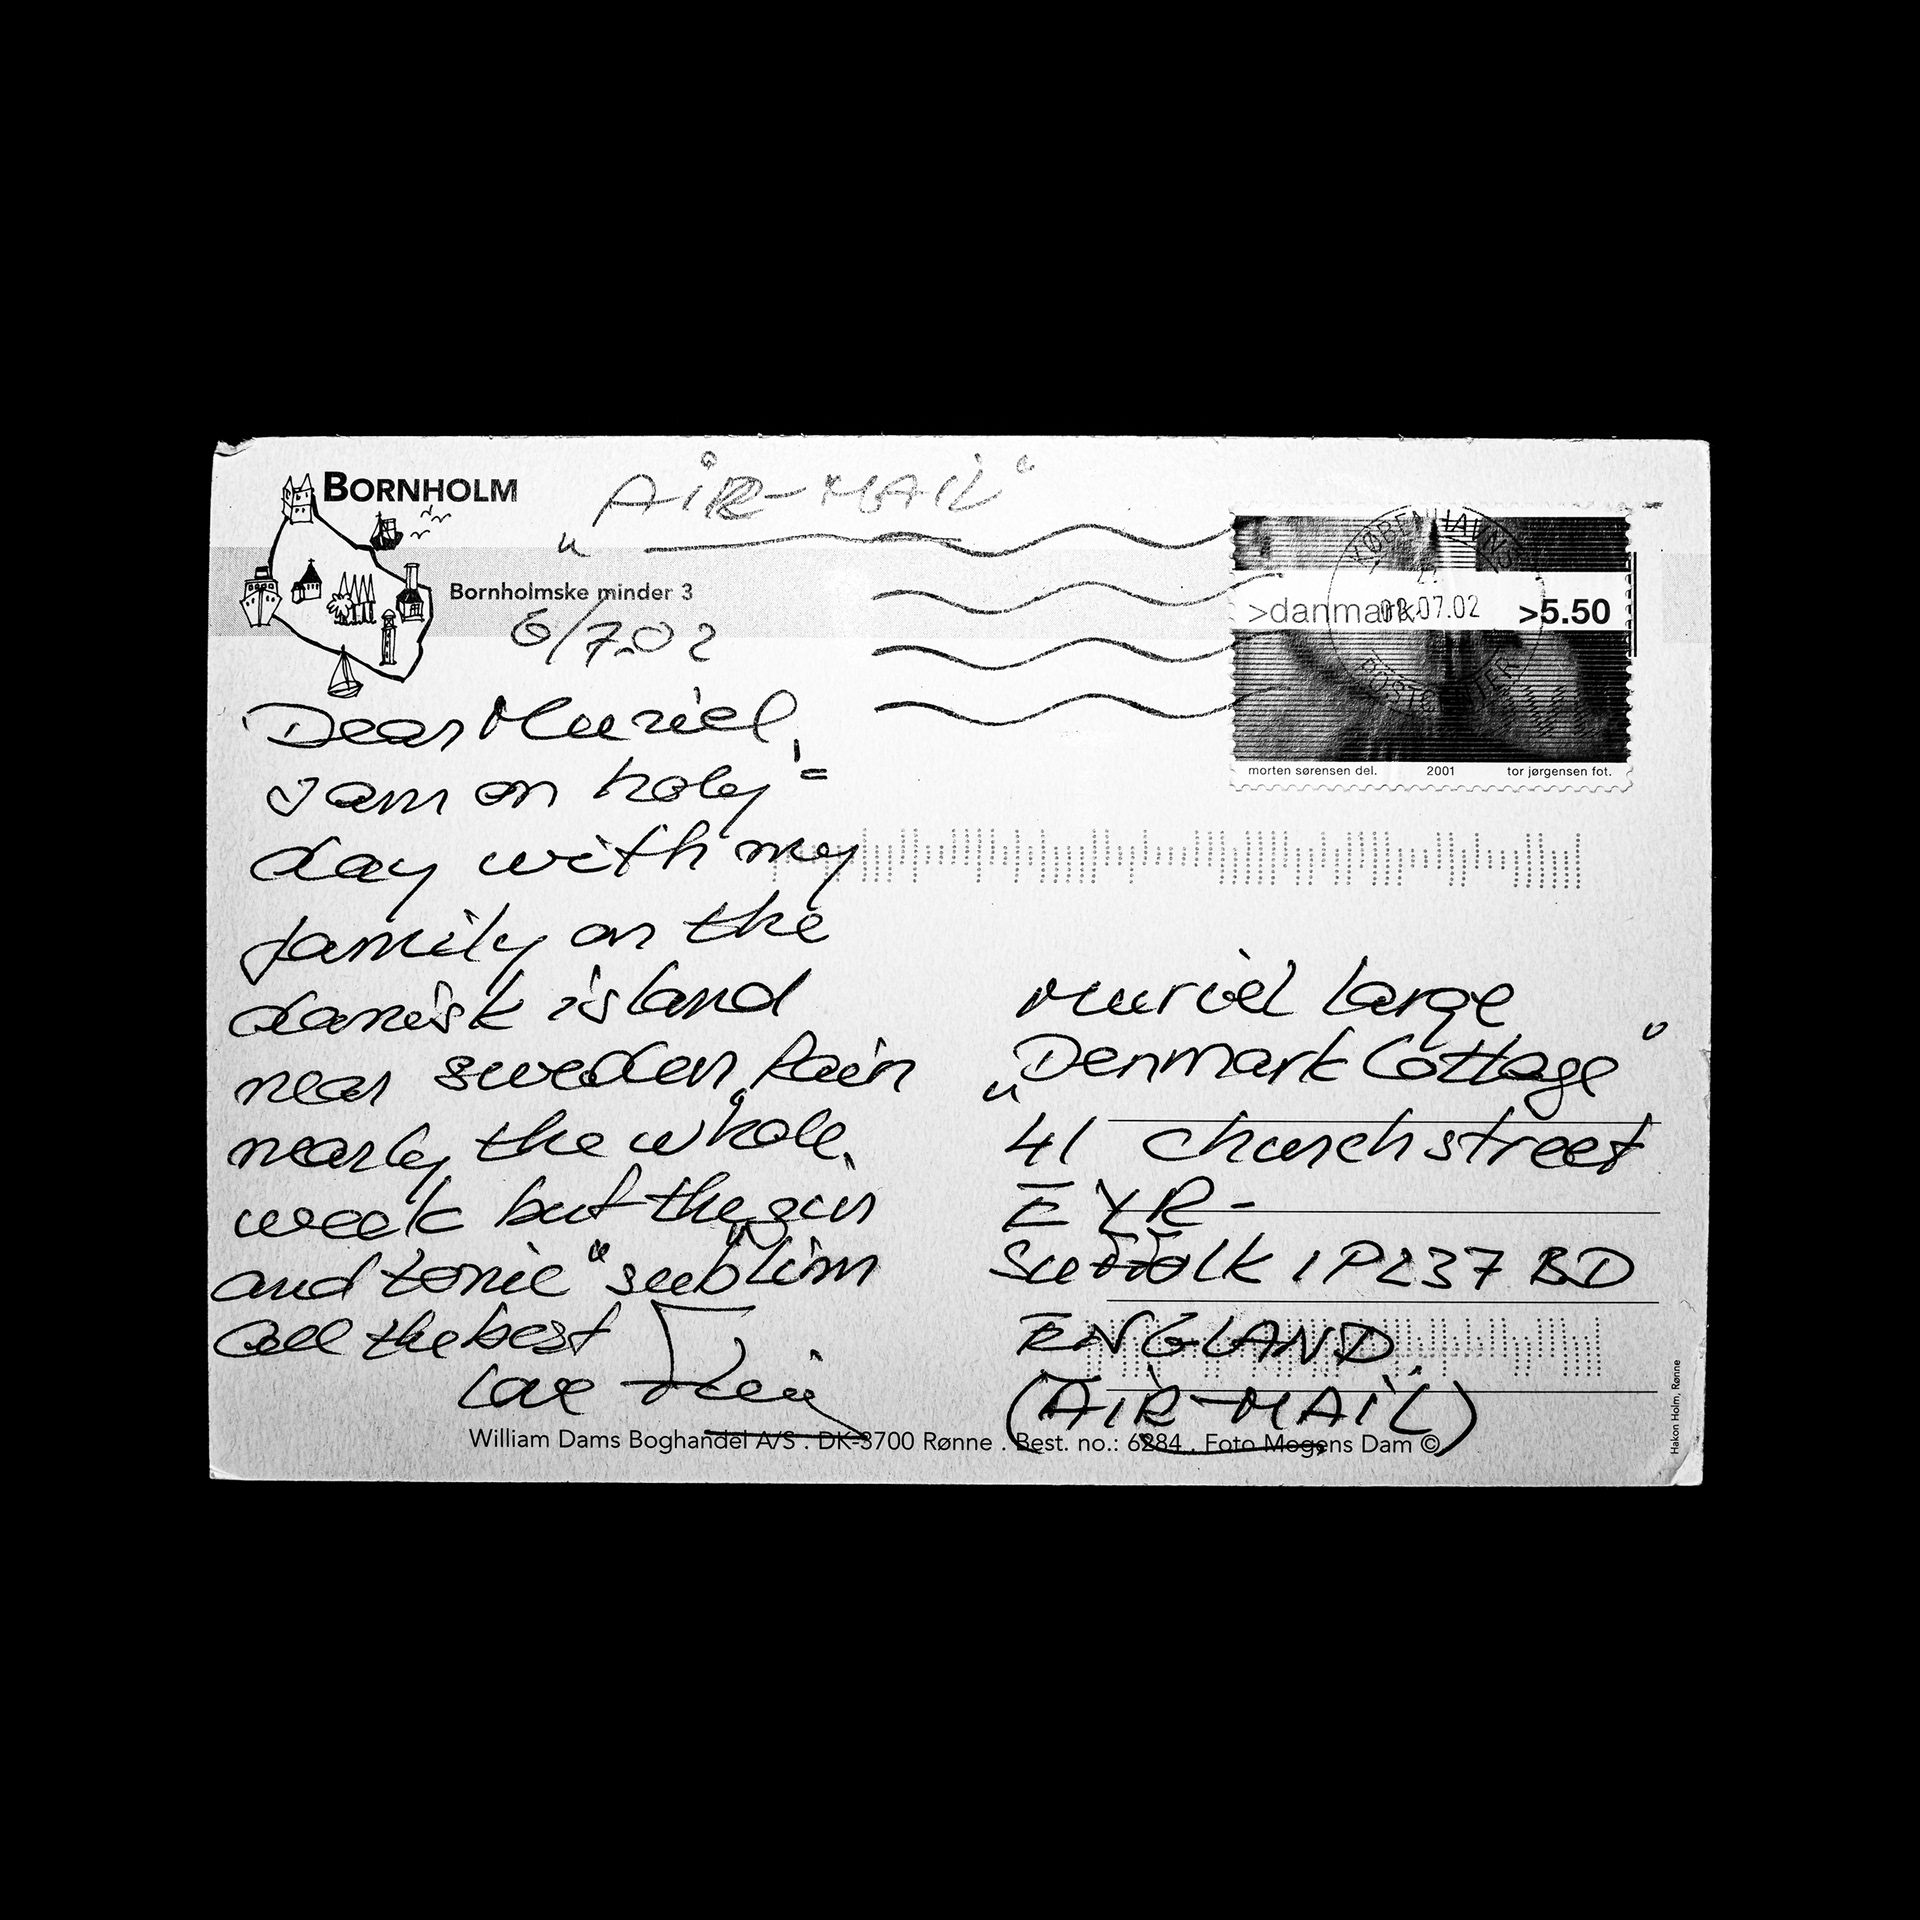 BORNHOLM
„AIR-MAIL“
Bornholmske minder 3
6/7.02
Dear Muriel,
I am on holy=
day with my
family on the
danisk island
near sweden, Rain
nearly the whole
week but the gin
and tonic "sublim"
all the best
Love
William Dams Boghandel A/S . DK-3700 Rønne . Best. no.: 6284 . Foto Mogens Dam ©
KØBENHAVNS
07.02
POSTCENTER
>danmark >5.50
morten sørensen del. 2001 tor jørgensen fot.
Muriel Large
„Denmark Cottage“
41 Church street
EYR-
Suffolk IP237BD
ENGLAND.
(AIR-MAIL)
Hakon Holm, Rønne